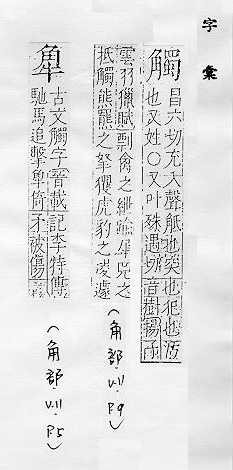 字彙
觸 昌六切充入聲觝也突也犯也汚
也又姓○又叶殊遇切音樹揚子
雲羽獵賦剽禽之紲踰犀兕之
抵觸熊羆之拏攫虎豹之凌遽
(角部.V.11.P.9)
古文觸字晉載記李特傳
馳馬追擊倚矛被傷
(角部.V.11.P.5)